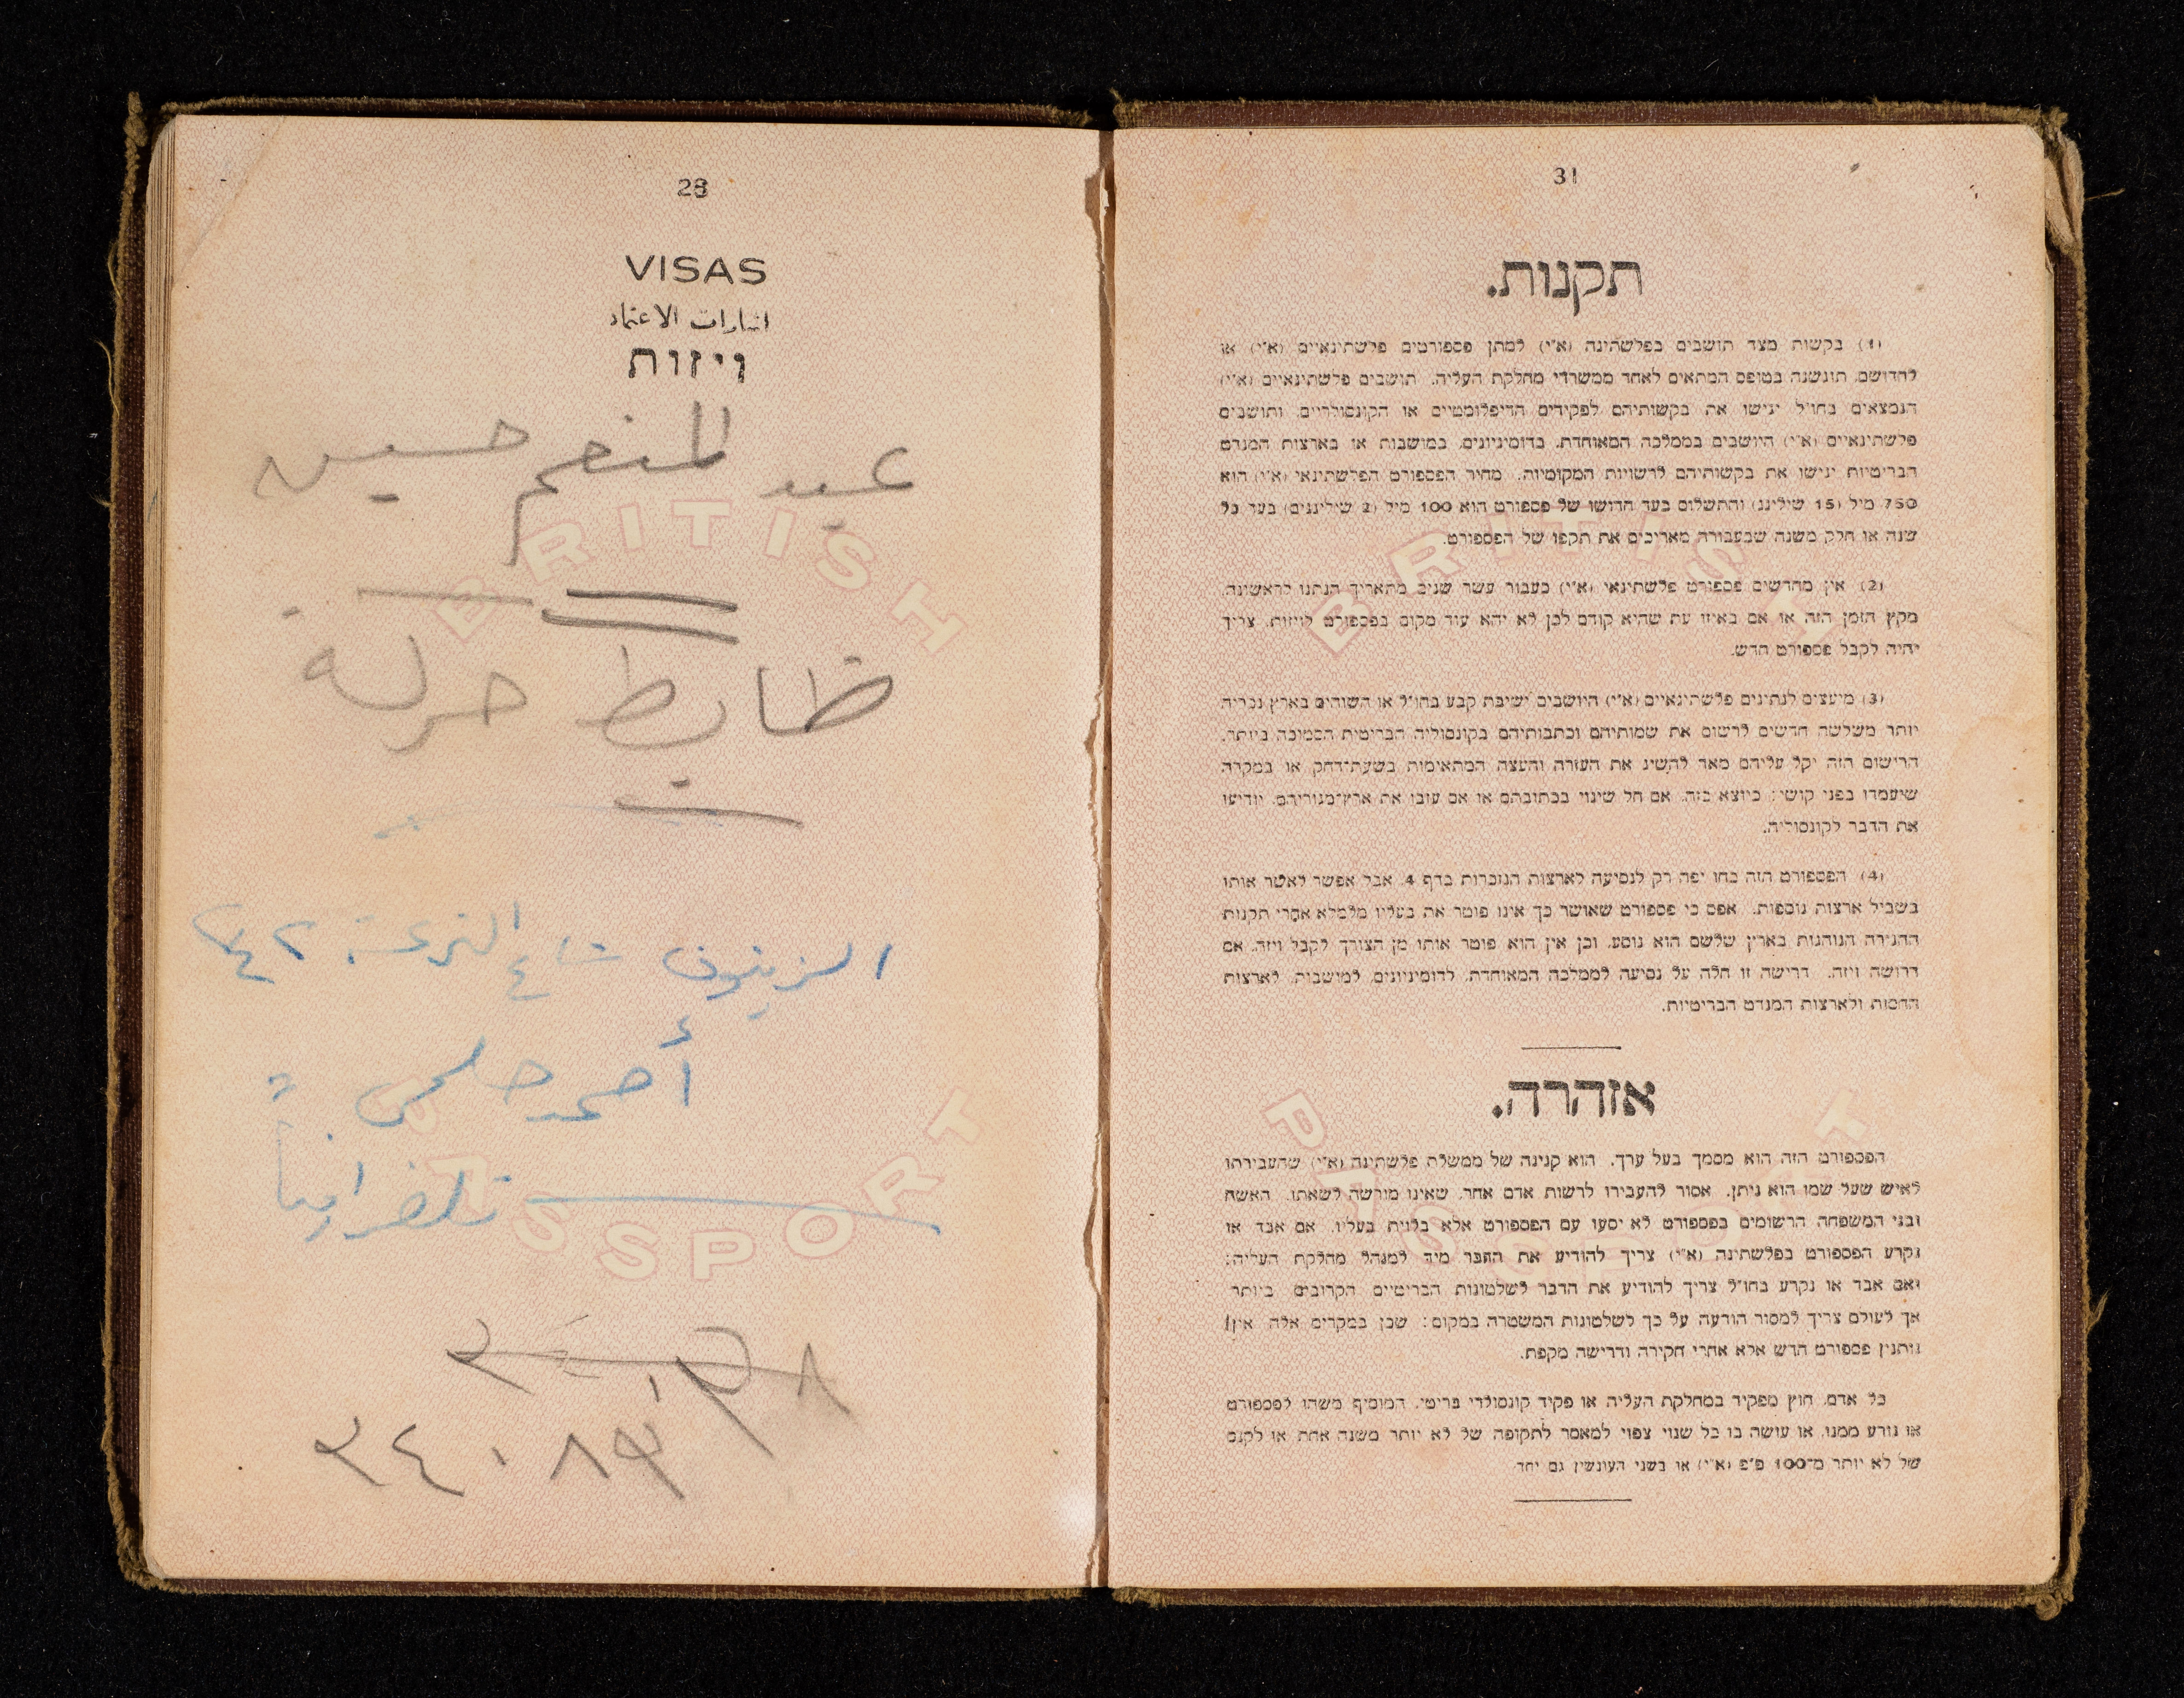 28
VISAS
اشارات الاعتماد
ויזות
عبد المنعم حسين
ضابط حركة
الزيتون شارع الترعة ٤٢
أحمد حلمى
تلغرافياً
BRITISH
PASSPORT
٢٤٠٨٩
31
תקנות.
(1) בקשות מצד תושבים בפלשתינה (א״י) למתן פספורטים פלשתינאיים (א״י) או
לחדושם, תוגשנה בטופס המתאים לאחד ממשרדי מחלקת העליה. תושבים פלשתינאיים (א״י)
הנמצאים בחו״ל יגישו את בקשותיהם לפקידים הדיפלומטיים או הקונסולריים, ותושבים
פלשתינאיים (א״י) היושבים בממלכה המאוחדת, בדומיניונים, במושבות או בארצות המנדט
הבריטיות יגישו את בקשותיהם לרשויות המקומיות. מחיר הפספורט הפלשתינאי (א״י) הוא
750 מיל (15 שילינג) והתשלום בעד חדושו של פספורט הוא 100 מיל (2 שילינגים) בעד כל
שנה או חלק משנה שבעבורה מאריכים את תקפו של הפספורט.
(2) אין מחדשים פספורט פלשתינאי (א״י) כעבור עשר שנים מתאריך הנתנו לראשונה.
מקץ הזמן הזה או אם באיזו עת שהיא קודם לכן לא יהא עוד מקום בפספורט לויזות, צריך
יהיה לקבל פספורט חדש.
(3) מיעצים לנתינים פלשתינאיים (א״י) היושבים ישיבת קבע בחו״ל או השוהים בארץ נכריה
יותר משלשה חדשים לרשום את שמותיהם וכתבותיהם בקונסוליה הבריטית הסמוכה ביותר.
הרישום הזה יקל עליהם מאד להשיג את העזרה והעצה המתאימות בשעת־דחק או במקרה
שיעמדו בפני קושי כיוצא בזה. אם חל שינוי בכתובתם או אם עזבו את ארץ־מגוריהם, יודיעו
את הדבר לקונסוליה.
(4) הפספורט הזה כחו יפה רק לנסיעה לארצות הנזכרות בדף 4, אבל אפשר לאשר אותו
בשביל ארצות נוספות. אפס כי פספורט שאושר כך אינו פוטר את בעליו מלמלא אחרי תקנות
ההגירה הנוהגות בארץ שלשם הוא נוסע, וכן אין הוא פוטר אותו מן הצורך לקבל ויזה, אם
דרושה ויזה. דרישה זו חלה על נסיעה לממלכה המאוחדת, לדומיניונים, למושבות, לארצות
החסות ולארצות המנדט הבריטיות.
אזהרה.
הפספורט הזה הוא מסמך בעל ערך. הוא קנינה של ממשלת פלשתינה (א״י) שהעבירתו
לאיש שעל שמו הוא ניתן. אסור להעבירו לרשות אדם אחר, שאינו מורשה לשאתו. האשה
ובני המשפחה הרשומים בפספורט לא יסעו עם הפספורט אלא בלוית בעליו. אם אבד או
נקרע הפספורט בפלשתינה (א״י) צריך להודיע את הדבר מיד למנהל מחלקת העליה;
ואם אבד או נקרע בחו״ל צריך להודיע את הדבר לשלטונות הבריטיים הקרובים ביותר
אך לעולם צריך למסור הודעה על כך לשלטונות המשטרה במקום: שכן במקרים אלה אין
נותנין פספורט חדש אלא אחרי חקירה ודרישה מקפת.
כל אדם, חוץ מפקיד במחלקת העליה או פקיד קונסולרי בריטי, המוסיף משהו לפספורט
או גורע ממנו, או עושה בו כל שנוי צפוי למאסר לתקופה של לא יותר משנה אחת או לקנס
של לא יותר מ־100 פ״פ (א״י) או בשני העונשין גם יחד.
BRITISH
PASSPORT